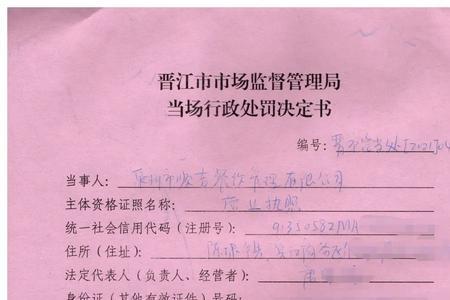 晋江市市场监督管理局
当场行政处罚决定书
编号：晋市 当处[2021]04
当事人：泉州市 吉餐饮管理有限公司
主体资格证照名称：营业执照
统一社会信用代码（注册号）：91350582MA
住所（住址）：陈埭镇
法定代表人（负责人、经营者）：
身份证（其他有效证件）号码：